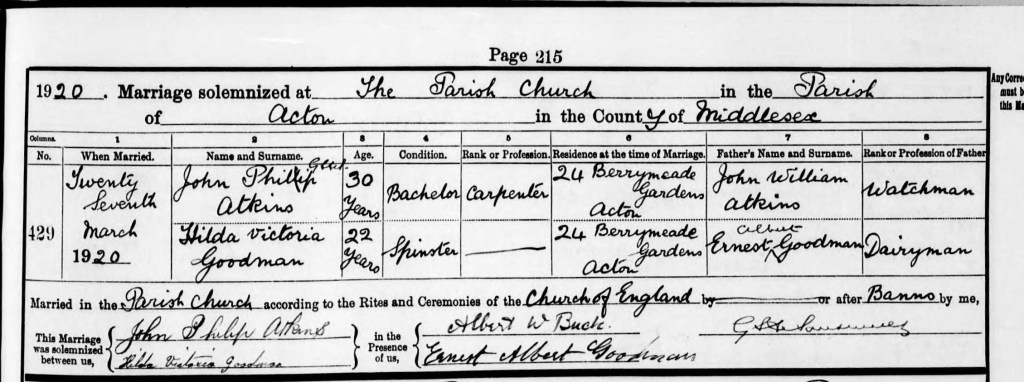 Page 215
1920. Marriage solemnized at The Parish Church in the Parish
of Acton in the County of Middlesex
Columns. 1 2 3 4 5 6 7 8
No. When Married. Name and Surname. Age. Condition. Rank or Profession. Residence at the time of Marriage. Father's Name and Surname. Rank or Profession of Father
429
Twenty Seventh March 1920
John Phillip Atkins 30 Years Bachelor Carpenter 24 Berrymeade Gardens Acton John William Atkins Watchman
Hilda Victoria Goodman 22 Years Spinster 24 Berrymeade Gardens Acton Ernest Albert Goodman Dairyman
Married in the Parish Church according to the Rites and Ceremonies of the Church of England by or after Banns by me,
This Marriage was solemnized between us,
John Philip Atkins
Hilda Victoria Goodman
in the Presence of us,
Albert W Buck.
Ernest Albert Goodman
Any Corre
must b
this Ma